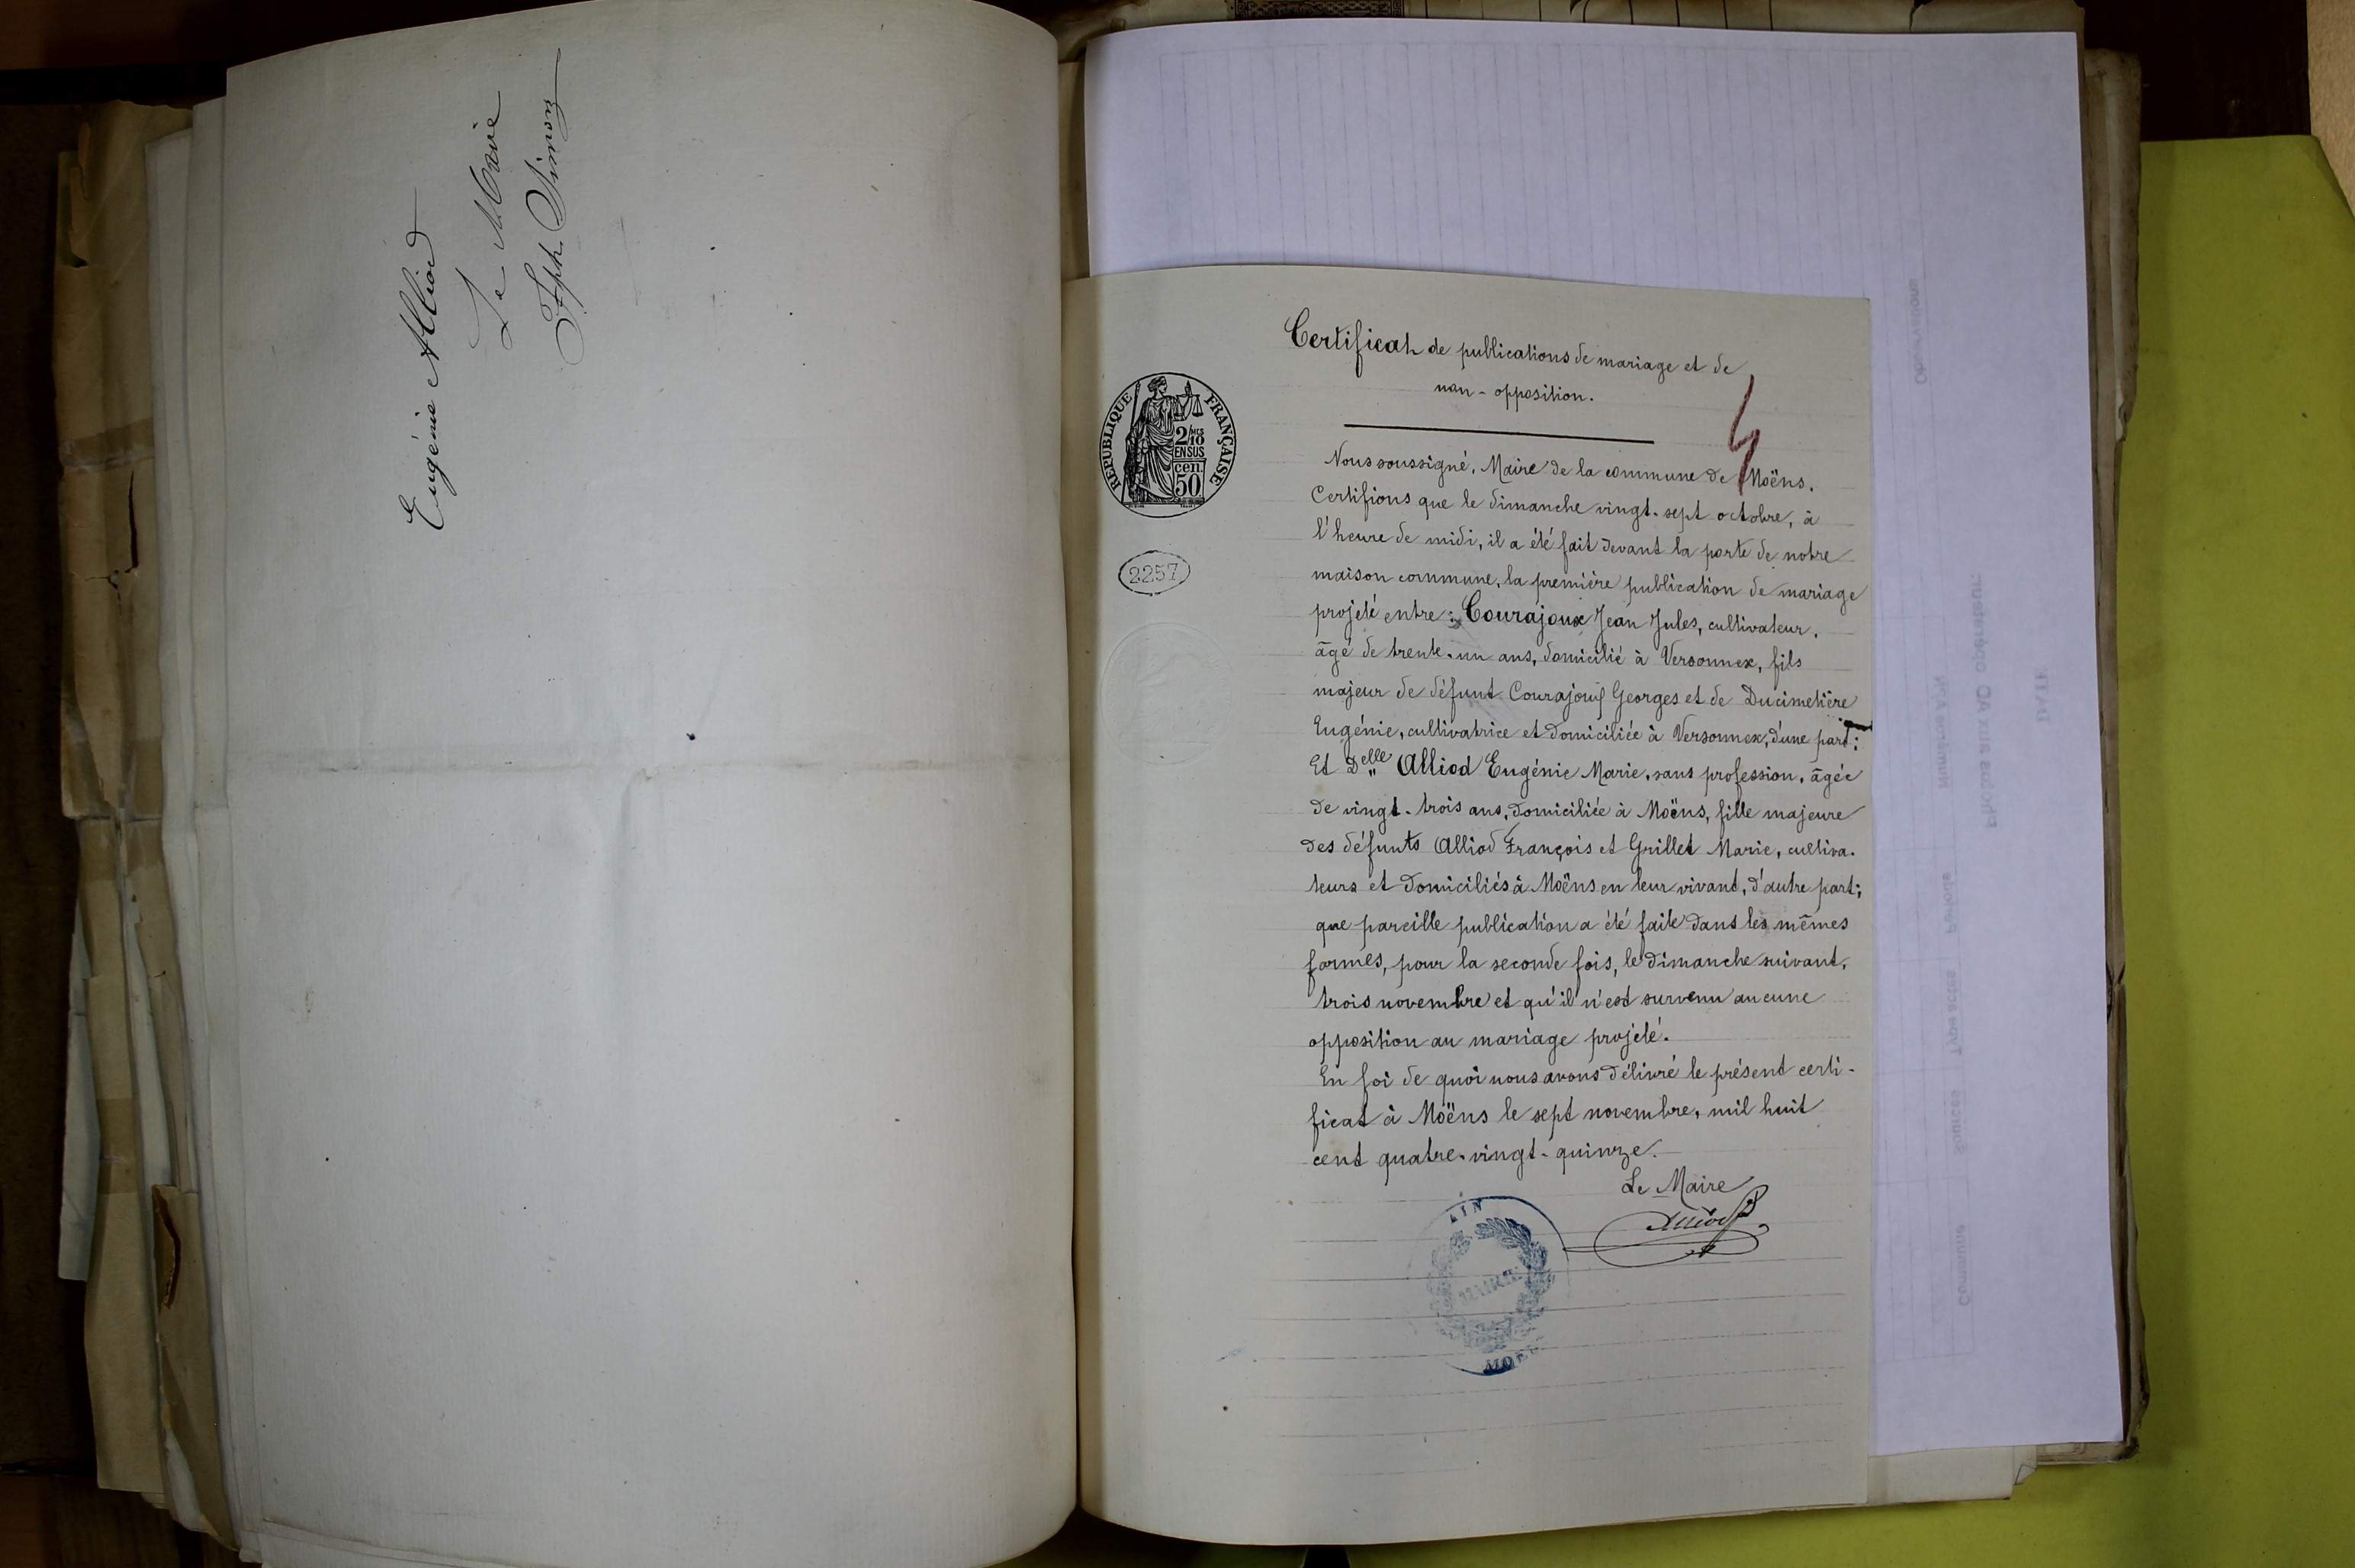 Eugénie Alliod
Le Maire
Certificat de publications de mariage et de
non-opposition.
RÉPUBLIQUE FRANÇAISE
2/10 MES
EN SUS
cen.
50
2257
Nous soussigné, Maire de la commune de Moëns.
Certifions que le dimanche vingt-sept octobre, à
l'heure de midi, il a été fait devant la porte de notre
maison commune, la première publication de mariage
projeté entre: Courajoux Jean Jules, cultivateur,
âgé de trente-un ans, domicilié à Versonnex, fils
majeur de défunt Courajoux Georges et de Ducimetière
Eugénie, cultivatrice et domiciliée à Versonnex, d'une part;
Et Delle Alliod Eugénie Marie, sans profession, âgée
de vingt-trois ans, domiciliée à Moëns, fille majeure
des défunts Alliod François et Grillet Marie, cultiva-
teurs et domiciliés à Moëns en leur vivant, d'autre part;
que pareille publication a été faite dans les mêmes
formes, pour la seconde fois, le dimanche suivant,
trois novembre et qu'il n'est survenu aucune
opposition au mariage projeté.
En foi de quoi nous avons délivré le présent certi-
ficat à Moëns le sept novembre, mil huit
cent quatre-vingt-quinze.
Le Maire
Alliod
AIN
MAIRIE
Observations
Photos aux AD opérateur
DATE
Numéros APN
Période
Type actes
Sources
Commune